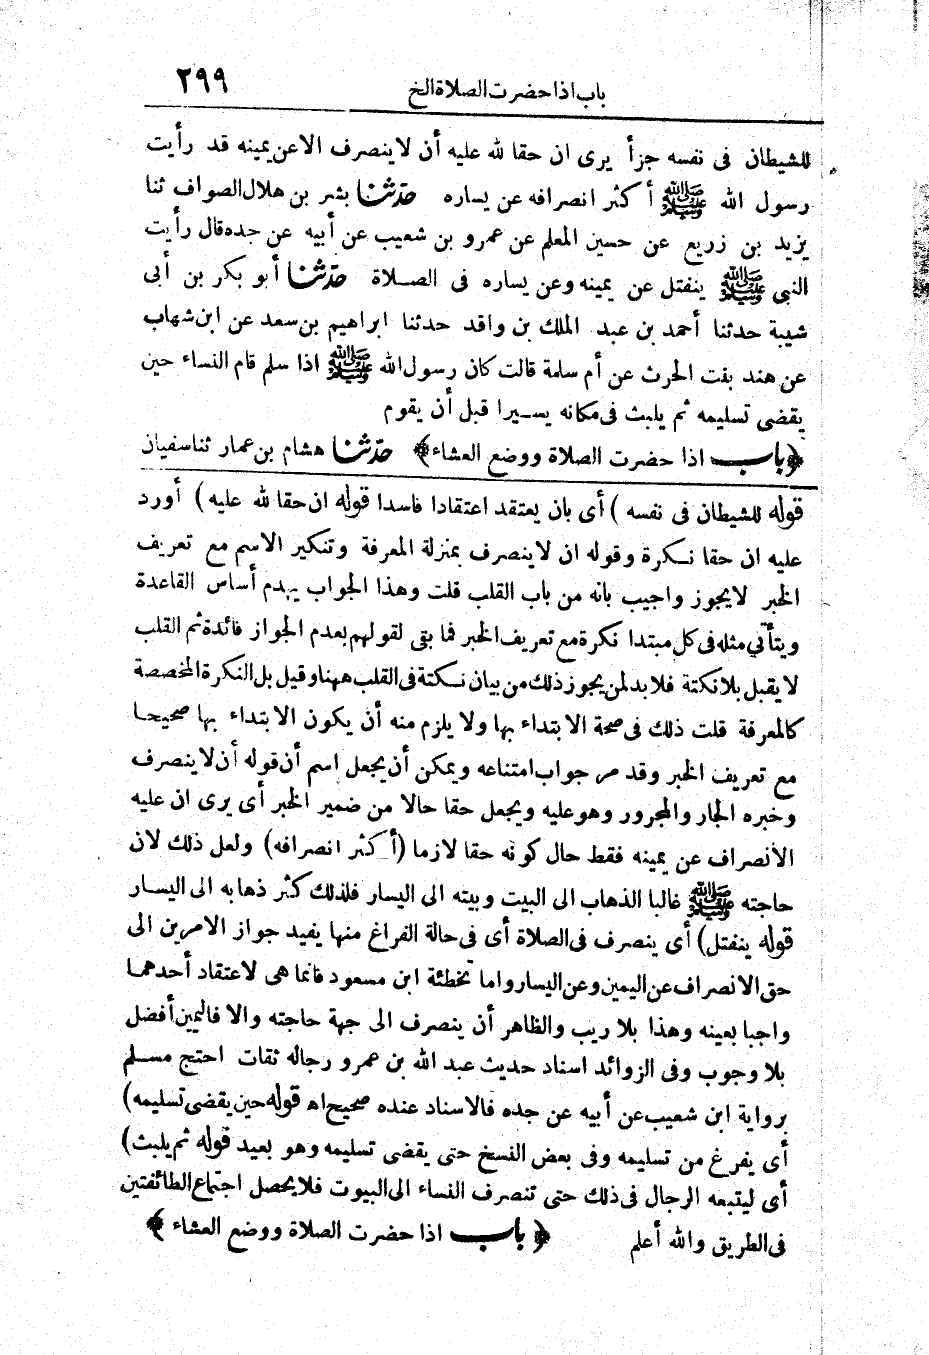 باب اذا حضرت الصلاة الخ ٢٩٩
للشيطان فى نفسه جزأ يرى ان حقا لله عليه أن لا ينصرف الا عن يمينه قد رأيت
رسول الله ﷺ أكثر انصرافه عن يساره حدّثنا بشر بن هلال الصواف ثنا
يزيد بن زريع عن حسين المعلم عن عمرو بن شعيب عن أبيه عن جده قال رأيت
النبى ﷺ ينفتل عن يمينه وعن يساره فى الصلاة حدّثنا أبو بكر بن أبى
شيبة حدثنا أحمد بن عبد الملك بن واقد حدثنا ابراهيم بن سعد عن ابن شهاب
عن هند بفت الحرث عن أم سلمة قالت كان رسول الله ﷺ اذا سلم قام النساء حين
يقضى تسليمه ثم يلبث فى مكانه يسيرا قبل أن يقوم
﴿باب اذا حضرت الصلاة ووضع العشاء﴾ حدّثنا هشام بن عمار ثنا سفيان
قوله للشيطان فى نفسه ) أى بان يعتقد اعتقادا فاسدا قوله ان حقا لله عليه ) أورد
عليه ان حقا نكرة وقوله ان لا ينصرف بمنزلة المعرفة وتنكير الاسم مع تعريف
الخبر لا يجوز واجيب بانه من باب القلب قلت وهذا الجواب يهدم أساس القاعدة
ويتأتّي مثله فى كل مبتدا نكرة مع تعريف الخبر فما بقى لقولهم بعدم الجواز فائدة ثم القلب
لا يقبل بلا نكتة فلا بد لمن يجوز ذلك من بيان نكتة فى القلب ههنا وقيل بل النكرة المخصصة
كالمعرفة قلت ذلك فى صحة الابتداء بها ولا يلزم منه أن يكون الابتداء بها صحيحا
مع تعريف الخبر وقد مر جواب امتناعه ويمكن أن يجعل اسم أن قوله أن لا ينصرف
وخبره الجار والمجرور وهو عليه ويجعل حقا حالا من ضمير الخبر أى يرى ان عليه
الانصراف عن يمينه فقط حال كونه حقا لازما (أكثر انصرافه) ولعل ذلك لان
حاجته ﷺ غالبا الذهاب الى البيت وبيته الى اليسار فلذلك كثر ذهابه الى اليسار
قوله ينفتل) أى ينصرف فى الصلاة أى فى حالة الفراغ منها يفيد جواز الامرين الى
حق الانصراف عن اليمين وعن اليسار واما تخطئة ابن مسعود فانما هى لاعتقاد أحدهما
واجبا بعينه وهذا بلا ريب والظاهر أن ينصرف الى جهة حاجته والا فاليمين أفضل
بلا وجوب وفى الزوائد اسناد حديث عبد الله بن عمرو رجاله ثقات احتج مسلم
برواية ابن شعيب عن أبيه عن جده فالاسناد عنده صحيح اه قوله حين يقضى تسليمه)
أى يفرغ من تسليمه وفى بعض النسخ حتى يقضى تسليمه وهو بعيد قوله ثم يلبث)
أى ليتبعه الرجال فى ذلك حتى تنصرف النساء الى البيوت فلا يحصل اجتماع الطائفتين
فى الطريق والله أعلم ﴿باب اذا حضرت الصلاة ووضع العشاء﴾